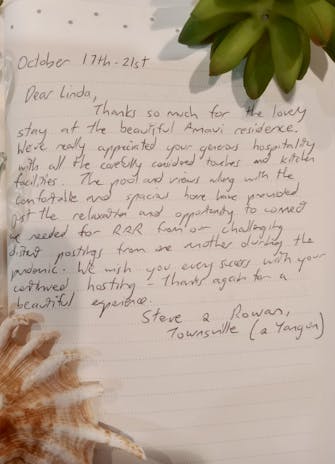 October 17th - 21st
Dear Linda,
Thanks so much for the lovely
stay at the beautiful Amavi residence.
We've really appreciated your generous hospitality
with all the carefully considered touches and kitchen
facilities. The pool and views along with the
comfortable and spacious home have provided
just the relaxation and opportunity to connect
we needed for RRR from our challenging
distant postings from one another during the
pandemic. We wish you every success with your
continued hosting - Thanks again for a
beautiful experience.
Steve & Rowan,
Townsville (& Yangon)